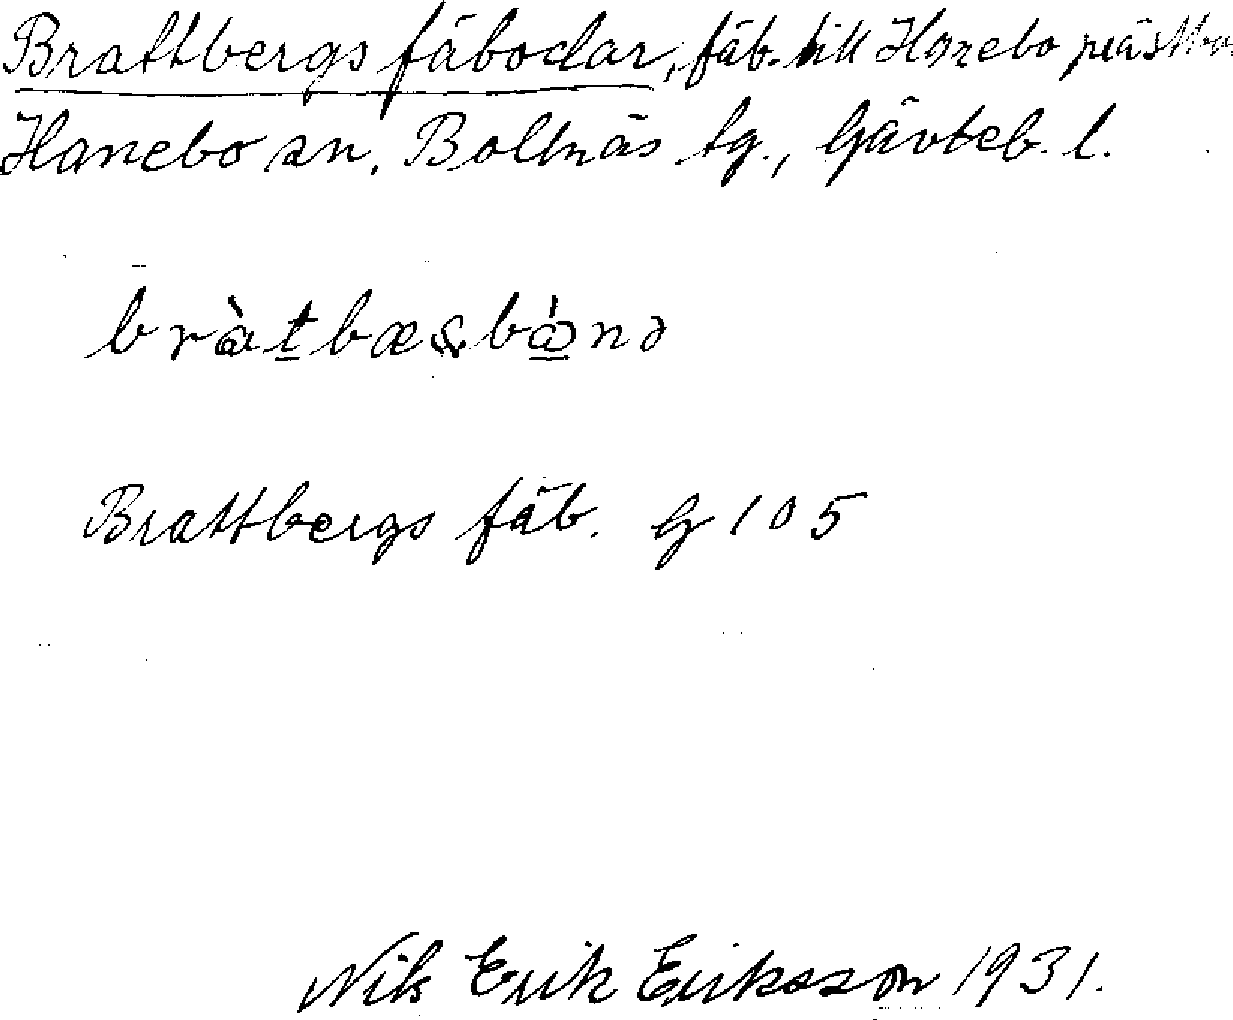 Brattbergs fäbodar, fäb. till Hanebo prästbo
Hanebo sn, Bollnäs tg., Gävleb. l.
bràt̲bæsbɷ́nə
Brattbergs fäb. G 105
Nils Erik Eriksson 1931.